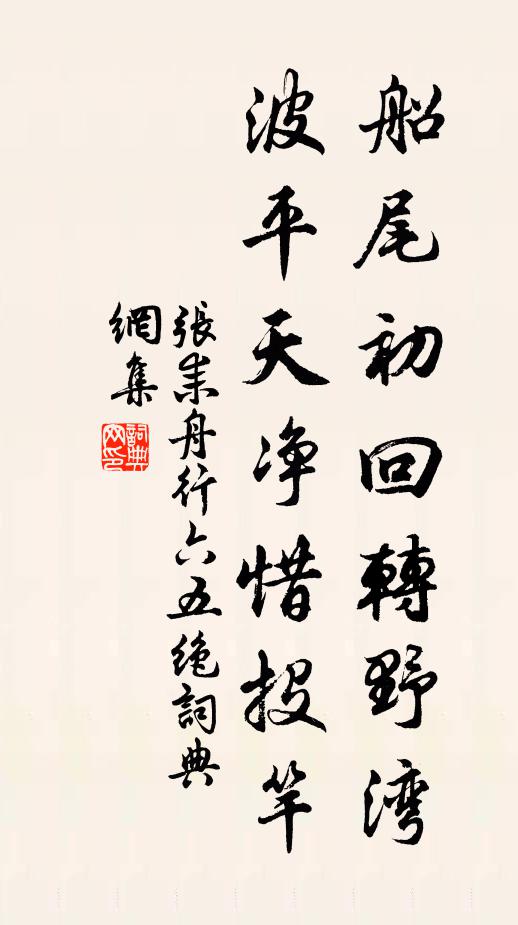 船尾初回轉野湾
波平天净惜投竿
張耒舟行六五絶詞典
網集
詞典网印